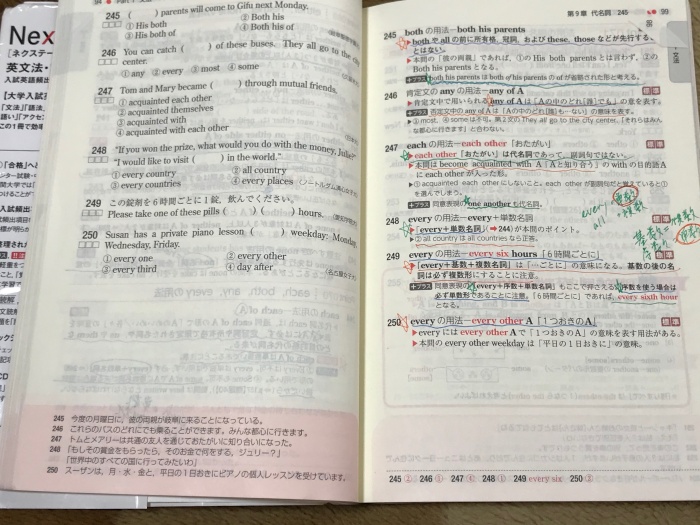 Nex
[ネクステー
英文法・
入試英語頻出
[大学入試
98 Part 1 文法
245 ( ) parents will come to Gifu next Monday.
① His both ② Both his
③ His both of ④ Both his of
246 You can catch ( ) of these buses. They all go to the city
center.
① any ② every ③ most ④ some
247 Tom and Mary became ( ) through mutual friends.
① acquainted each other
② acquainted themselves
③ acquainted with
④ acquainted with each other
248 "If you won the prize, what would you do with the money, Julie?"
"I would like to visit ( ) in the world."
① every country ② all country
③ every countries ④ every places
249 この錠剤を6時間ごとに1錠, 飲んでください。
Please take one of these pills ( ) ( ) hours.
250 Susan has a private piano lesson ( ) weekday: Monday,
Wednesday, Friday.
① every one ② every other
③ every third ④ day after
245 今度の月曜日に, 彼の両親が岐阜に来ることになっている。
246 これらのバスのどれにでも乗ることができます。みんな都心に行きます。
247 トムとメアリーは共通の友人を通じておたがいに知り合いになった。
248 「もしその賞金をもらったら, そのお金で何をする, ジュリー?」
「世界中のすべての国に行ってみたいわ」
250 スーザンは, 月・水・金と, 平日の1日おきにピアノの個人レッスンを受けています。
第9章 代名詞 245 99
245 both の用法—both his parents
▶both や all の前に所有格, 冠詞, および these, those などが先行する
とはない。
▶本問の「彼の両親」であれば, ①の His both Parents とは言わず, ②の
Both his Parents となる。
+プラス both his parents は both of his parents の of が省略された形と考える。
246 肯定文の any の用法—any of A
▶肯定文中で用いられる any of A は「Aの中のどれ[誰]でも」の意を表す。
247 each の用法—each other「おたがい」
▶each other「おたがい」は代名詞であって, 副詞句ではない。
▶本問は become acquainted with A「Aと知り合う」の with の目的語A
に each other が入った形。
+プラス 同意表現の one another も代名詞。
248 every の用法—every+単数名詞
▶「every+単数名詞」(➡244)が本問のポイント。
▶② all country は all countries なら正答。
249 every の用法—every six hours「6時間ごとに」
▶「every+基数+複数名詞」は「…ごとに」の意味になる。基数の後の名
詞は必ず複数形にすることに注意。
+プラス 同意表現の「every+序数+単数名詞」もここで押さえる。序数を使う場合は
必ず単数形であることに注意。「6時間ごとに」であれば, every sixth hour
となる。
250 every の用法—every other A「1つおきのA」
▶every には every other A で「1つおきのA」の意味を表す用法がある。
▶本問の every other weekday は「平日の1日おきに」の意味。
245 ② 246 ① 247 ④ 248 ① 249 every six 250 ②